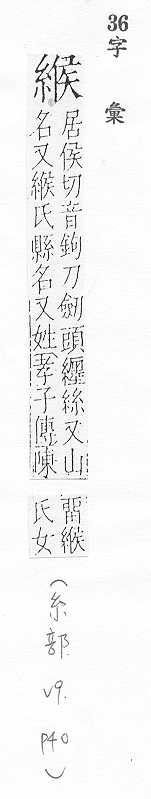 36
字彙
緱
居侯切音鉤刀劒頭纏絲又山
名又緱氏縣名又姓孝子傳陳
留緱
氏女
(糸部 v9. P40)